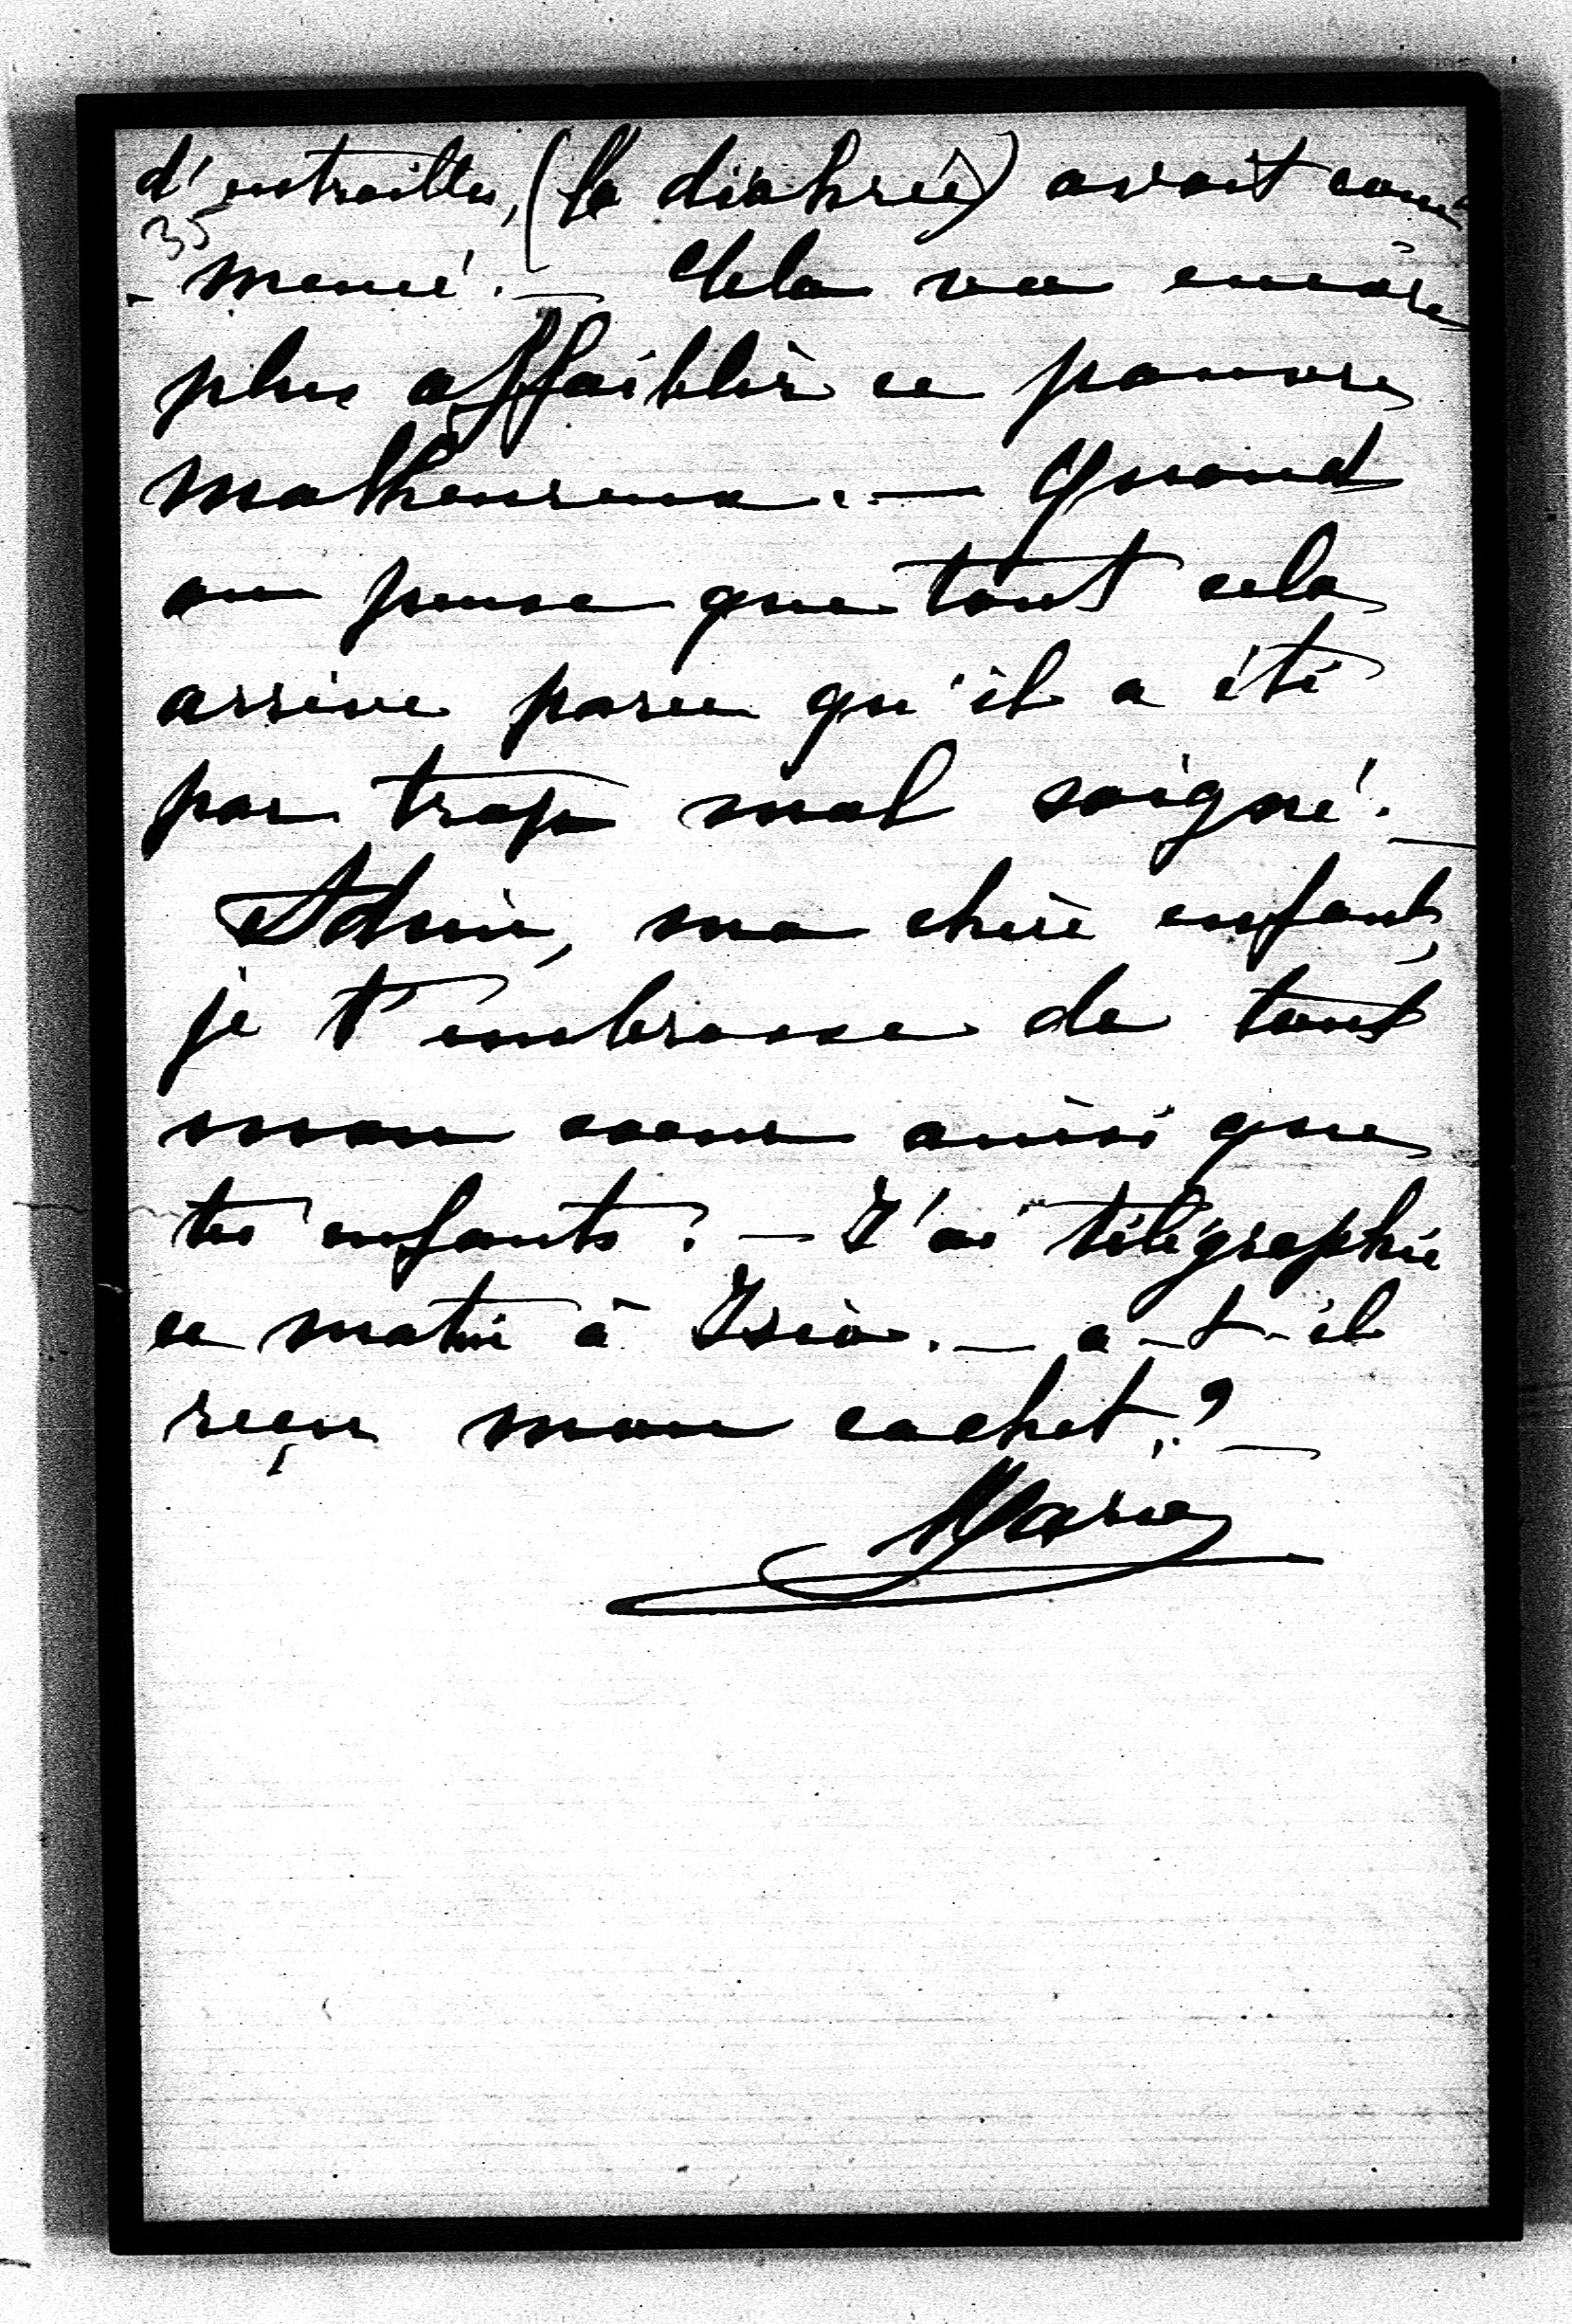 d'entrailles, (la diahrée) avait com
35
- mencé. — Cela va encore
plus affaiblir ce pauvre
malheureux. — Quand
on pense que tout cela
arrive parce qu'il a été
par trop mal soigné. —
Adieu, ma chère enfant,
je t'embrasse de tout
mon coeur ainsi que
tes enfants. — J'ai télégraphié
ce matin à . — a-t-il
reçu mon cachet ? —
Marie